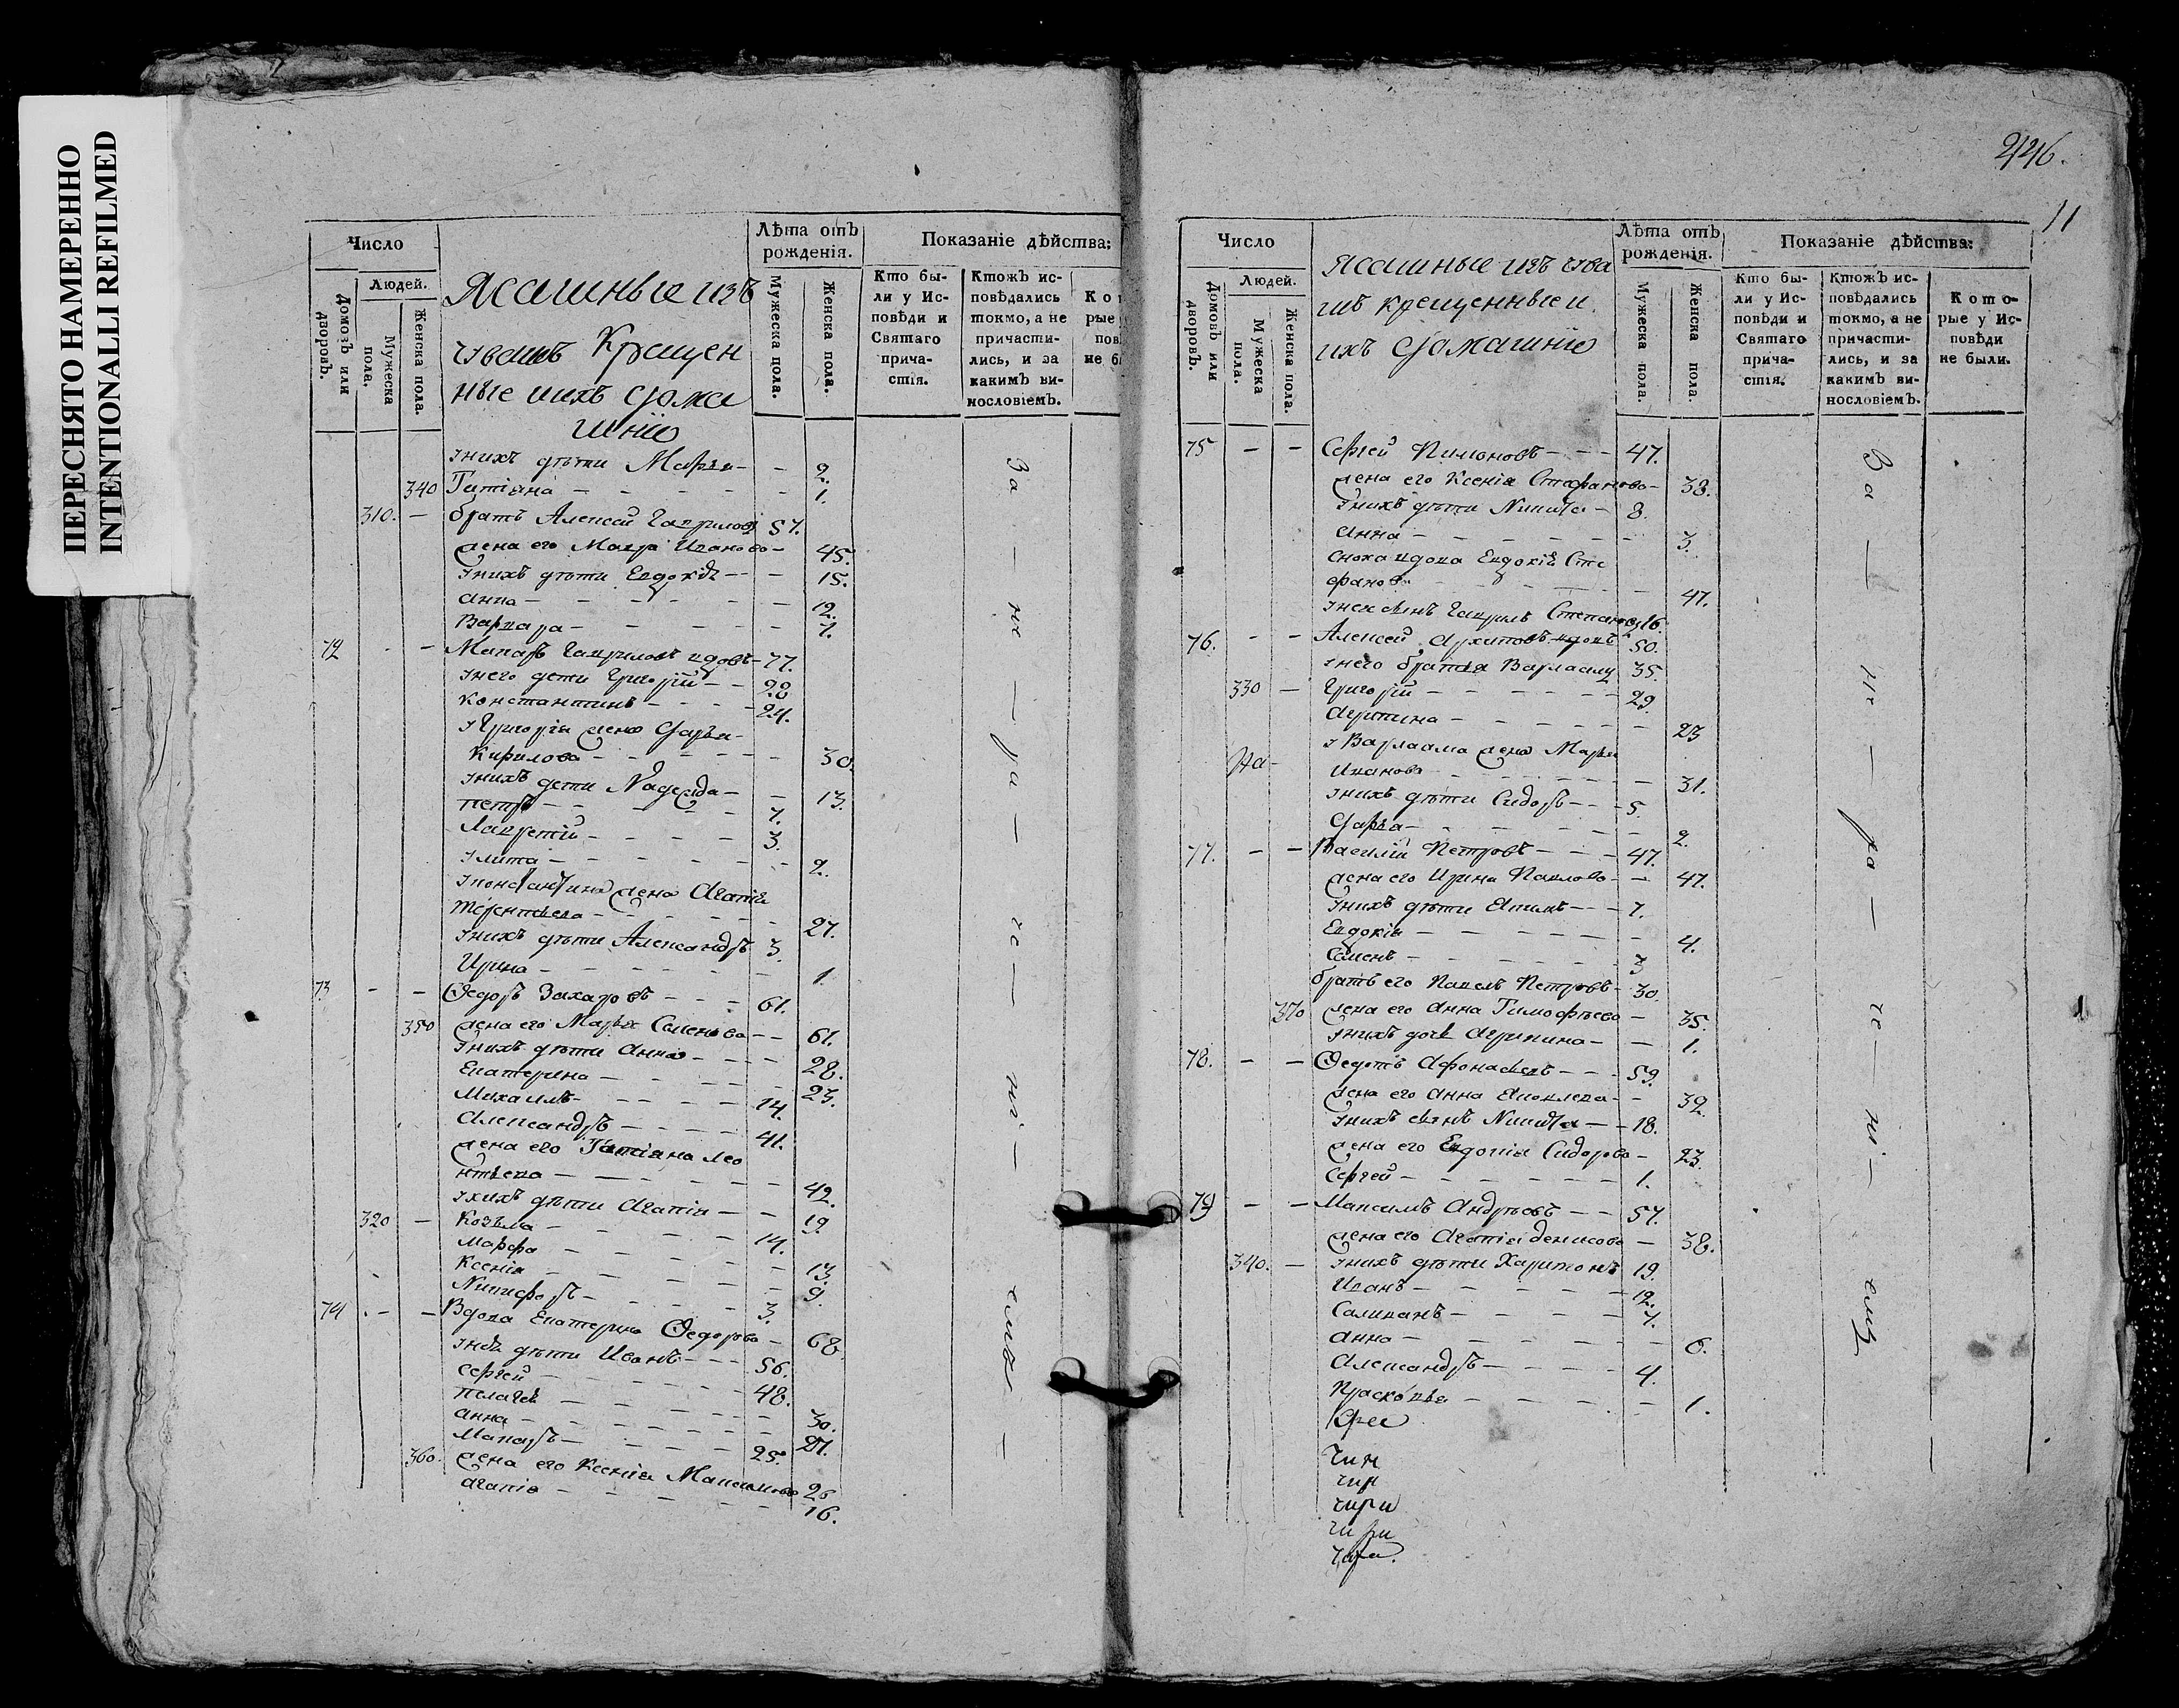 ПЕРЕСНЯТО НАМЕРЕННО
INTENTIONALLI REFILMED
Число
Людей.
Домовъ или дворовъ.
Мужеска пола.
Женска пола.
Ясашные изъ
чвашъ Крещен
ные иихъ дома
шніе
Лѣта отъ рожденія.
Мужеска пола.
Женска пола.
Показаніе дѣйства:
Кто бы-
ли у Ис-
повѣди и
Святаго
прича-
стія.
Ктожъ ис-
повѣдались
токмо, а не
причасти-
лись, и за
какимъ ви-
нословіемъ.
унихъ дѣти Марья - - 2.
340 Татіана - - - 1.
310. - братъ Алексей Гавриловъ 57.
жена его Мавра Иванова - 45.
Унихъ дѣти Евдокія - - - 15.
анна - - - 12.
Варвара - - - 7.
72 - - Макаръ Гавриловъ вдовъ - 77.
унего дети Григорій - - 28
Константинъ - - - 24.
У Григорія жена Дарья
Кирилова - - - 30.
Унихъ дети Надежда - - 13.
петръ - - - 7.
Лаврентій - - - 3.
- - - 2.
Уконстантина жена Агапія
Терентьева - - - 27.
Унихъ дѣти Александръ 3.
Ирина - - - 1.
73 - - Ѳедоръ Захаровъ - - - 61.
350 жена его Марья Семенова - - 61.
Унихъ дѣти Анна - - - 28.
Екатерина - - - 23.
Михаилъ - - - 14.
Александръ - - - 41.
жена его Татіана Лео
нтьева - - - 42.
Унихъ дѣти Агапія - - 19.
320 - Козьма - - - 14.
Марфа - - - 13.
Ксенія - - - 9.
Никифоръ - - - 3.
74 - - Вдова Екатерина Ѳедорова - 68.
унея дѣти Иванъ - - - 56.
Сергей - - - 48.
пелагея - - - 30.
анна - - - 27.
Макаръ - - - 25.
360. жена его Ксенія Максимова 26
агапія - - - 16.
За - не - ра - че - ні - емъ -
246.
11
Число
Людей.
Домовъ или дворовъ.
Мужеска пола.
Женска пола.
Ясашные изъ чва
шъ крещенные и
ихъ домашніе
Лѣта отъ рожденія.
Мужеска пола.
Женска пола.
Показаніе дѣйства:
Кто бы-
ли у Ис-
повѣди и
Святаго
прича-
стія.
Ктожъ ис-
повѣдались
токмо, а не
причасти-
лись, и за
какимъ ви-
нословіемъ.
Кото-
рые у Ис-
повѣди
не были.
75 - - Сергей Пимоновъ - - - 47.
жена его Ксенія Стефанова - 38.
Унихъ дѣти Никита - 8.
Анна - - - 3.
сноха вдова Евдокія Сте
фанова - - - 47.
унея сынъ Гаврилъ Степановъ 16.
76. - - Алексей Архиповъ вдовъ 50.
унего братья Варлаамъ 35.
330 - Григорій - - - 29.
Агрипина - - - 23
У Варлаама жена Марья
Иванова - - - 31.
Унихъ дѣти Сидоръ - - - 5.
Дарья - - - 2.
77. - - Василій Петровъ - - - 47.
жена его Ирина Павлова - - 47.
Унихъ дѣти - - - 7.
Евдокія - - - 4.
Семенъ - - - 3
братъ его Павелъ Петровъ - 30.
370 жена его Анна Тимофѣева - 35.
Унихъ дочь Агрипина - - 1.
78. - - Ѳедотъ Афонасьевъ - - - 59.
жена его Анна Яковлева - - 32.
Унихъ сынъ Никита - - 18.
жена его Евдокія Сидорова - 23.
Сергей - - - 1.
79 - - Максимъ Андрѣевъ - - 57.
жена его Агапія денисова - 38.
340. - Унихъ дѣти Харитонъ 19.
Иванъ - - - 12.
Селиванъ - - - 7.
анна - - - 6.
Александръ - - - 4.
Прасковья - - - 1.
чин
чин
чири
чири
За - не - ра - че - ні - емъ